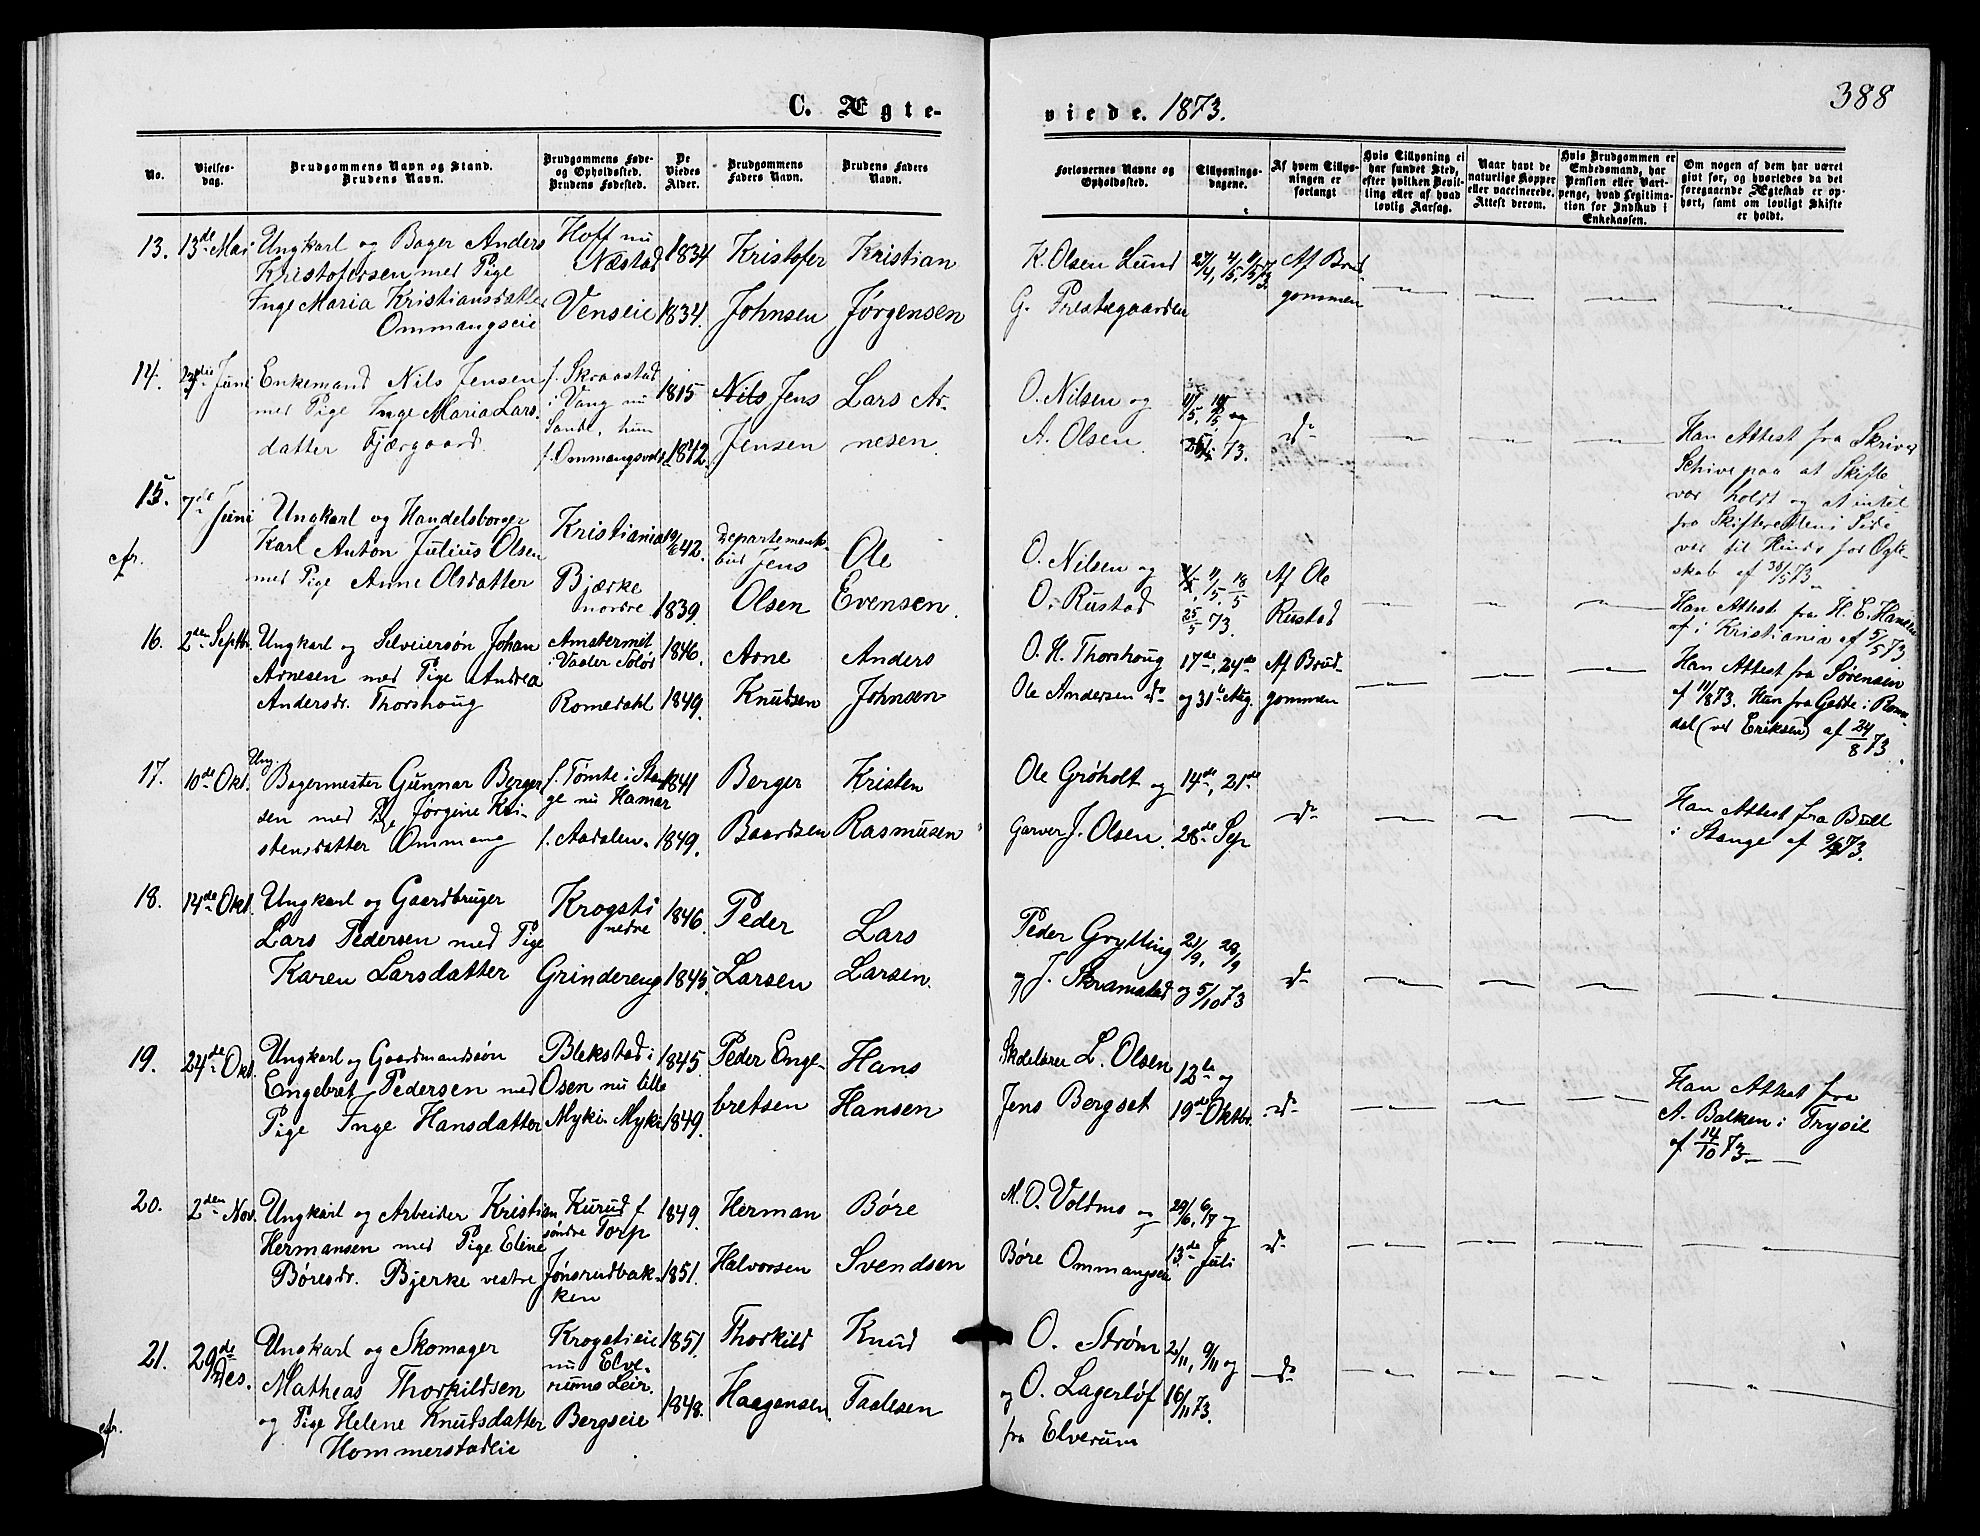 388
C. Ægte-
viede. 1873.
No.
Vielses-
dag.
Brudgommens Navn og Stand.
Brudens Navn.
Brudgommens Føde-
og Opholdssted.
Brudens Fødested.
De
Viedes
Alder.
Brudgommens
Faders Navn.
Brudens Faders
Navn.
Forlovernes Navne og
Opholdssted.
Tillysnings-
dagene.
Af hvem Tillys-
ningen er
forlangt
Hvis Tillysning ei
har fundet Sted,
efter hvilken Bevil-
ling eller af hvad
lovlig Aarsag.
Naar havt de
naturlige Kopper
eller vaccinerede.
Attest derom.
Hvis Brudgommen er
Embedsmand, har
Pension eller Vart-
penge, hvad Legitima-
tion for Indskud i
Enkekassen.
Om nogen af dem har været
gift før, og hvorledes da det
foregaaende Ægteskab er op-
hørt, samt om lovligt Skifte
er holdt.
13.
13de Mai
Ungkarl og Bager Anders
Kristofersen med Pige
Inge Maria Kristiansdatter
Ommangseie
Hoff nu
Næstad
Venseie
1834
1834.
Kristofer
Johnsen
Kristian
Jørgensen
K. Olsen Lund
G. Prestegaarden
27/4, 4/5, 11/5 73.
Af Brud-
gommen
14.
Juni
Enkemand Nils Jensen
med Pige Inge Maria Lars-
datter Fjærgaard
f. Skraastad
i Vang nu
Sande, hun
f. Ommangsvold
1815
1842.
Nils Jens
Jensen
Lars Ar-
nesen
O. Nilsen og
A. Olsen
11/5, 18/5 og
73.
do
Han Attest fra Skriver
Schive paa at Skifte
var holdt og at intet
fra Skifterettens Side
var til Hinder for Ægte-
skab af 30/5 73
15.
7de Juni
cfr.
Ungkarl og Handelsborger
Karl Anton Julius Olsen
med Pige Anne Olsdatter
Kristiania
Bjærke
nordre
42.
1839.
Departements-
bud Jens
Olsen
Ole
Evensen
O. Nilsen og
O. Rustad
11/5, 18/5
25/5 73.
Af Ole
Rustad
Han Attest fra H. E. Hansen
af i Kristiania af 5/5 73
16.
2den Septbr.
Ungkarl og Selveiersøn Johan
Arnesen med Pige Andrea
Andersdr. Thorshoug
i Vaaler Solør
Romedahl
1846.
1849.
Arne
Knudsen
Anders
Johnsen
O. H. Thorshoug
Ole Andersen do
17de, 24de
og 31te Aug.
Af Brud-
gommen
Han Attest fra Sørensen
af 11/8 73. Hun fra Gedde i Rome-
dal (ved Eriksen) af 24/8 73.
17.
10de Okt.
Ung.
Bagermester Gunnar Berger-
sen med Pige Jørgine Kri-
stensdatter Ommang
f. Tomte i Stan-
ge nu Hamar
f. Aadalen.
1841
1849.
Berger
Baardsen
Kristen
Rasmusen
Ole Grøholt og
Garver J. Olsen.
14de, 21de
28de Sep
do
Han Attest fra Bull
i Stange af 73.
18.
14de Okt.
Ungkarl og Gaardbruger
Lars Pedersen med Pige
Karen Larsdatter
Krogsti
nedre
Grindereng
1846.
1845.
Peder
Larsen
Lars
Larsen.
Peder Grytting
og J. Skramstad
21/9, 28/9
og 5/10 73
do
19.
24de Okt.
Ungkarl og Gaardmandssøn
Engebret Pedersen med
Pige Inge Hansdatter
Blekstad i
Osen nu lille
Mykie Myki
1845.
1849.
Peder Enge-
bretsen
Hans
Hansen
Skolelærer L. Olsen
Jens Bergset
12te og
19de Oktbr.
do
Han Attest fra
A. Balken i Trysil
af 14/10 73.
20.
2den Nov.
Ungkarl og Arbeider Kristian
Hermansen med Pige Eline
Børesdr. Bjerke vestre
Kurud f.
søndre Torp
Jønsrudbak-
ken
1849.
1851.
Herman
Halvorsen
Børe
Svendsen
M. O. Voldmo og
Børe Ommangseie
29/6, 6/7 og
13de Juli
do
21.
29de Des.
cfr.
Ungkarl og Skomager
Mathias Thorkildsen
og Pige Helene Knudsdatter
Hommerstadeie
Krogstieie
nu Elve-
rums Leir.
Bergseie
1851.
1848.
Thorkild
Haagensen
Knud
Taalesen
O. Strøm
og O. Lagerløf
fra Elverum
2/11, 9/11 og
16/11 73.
do